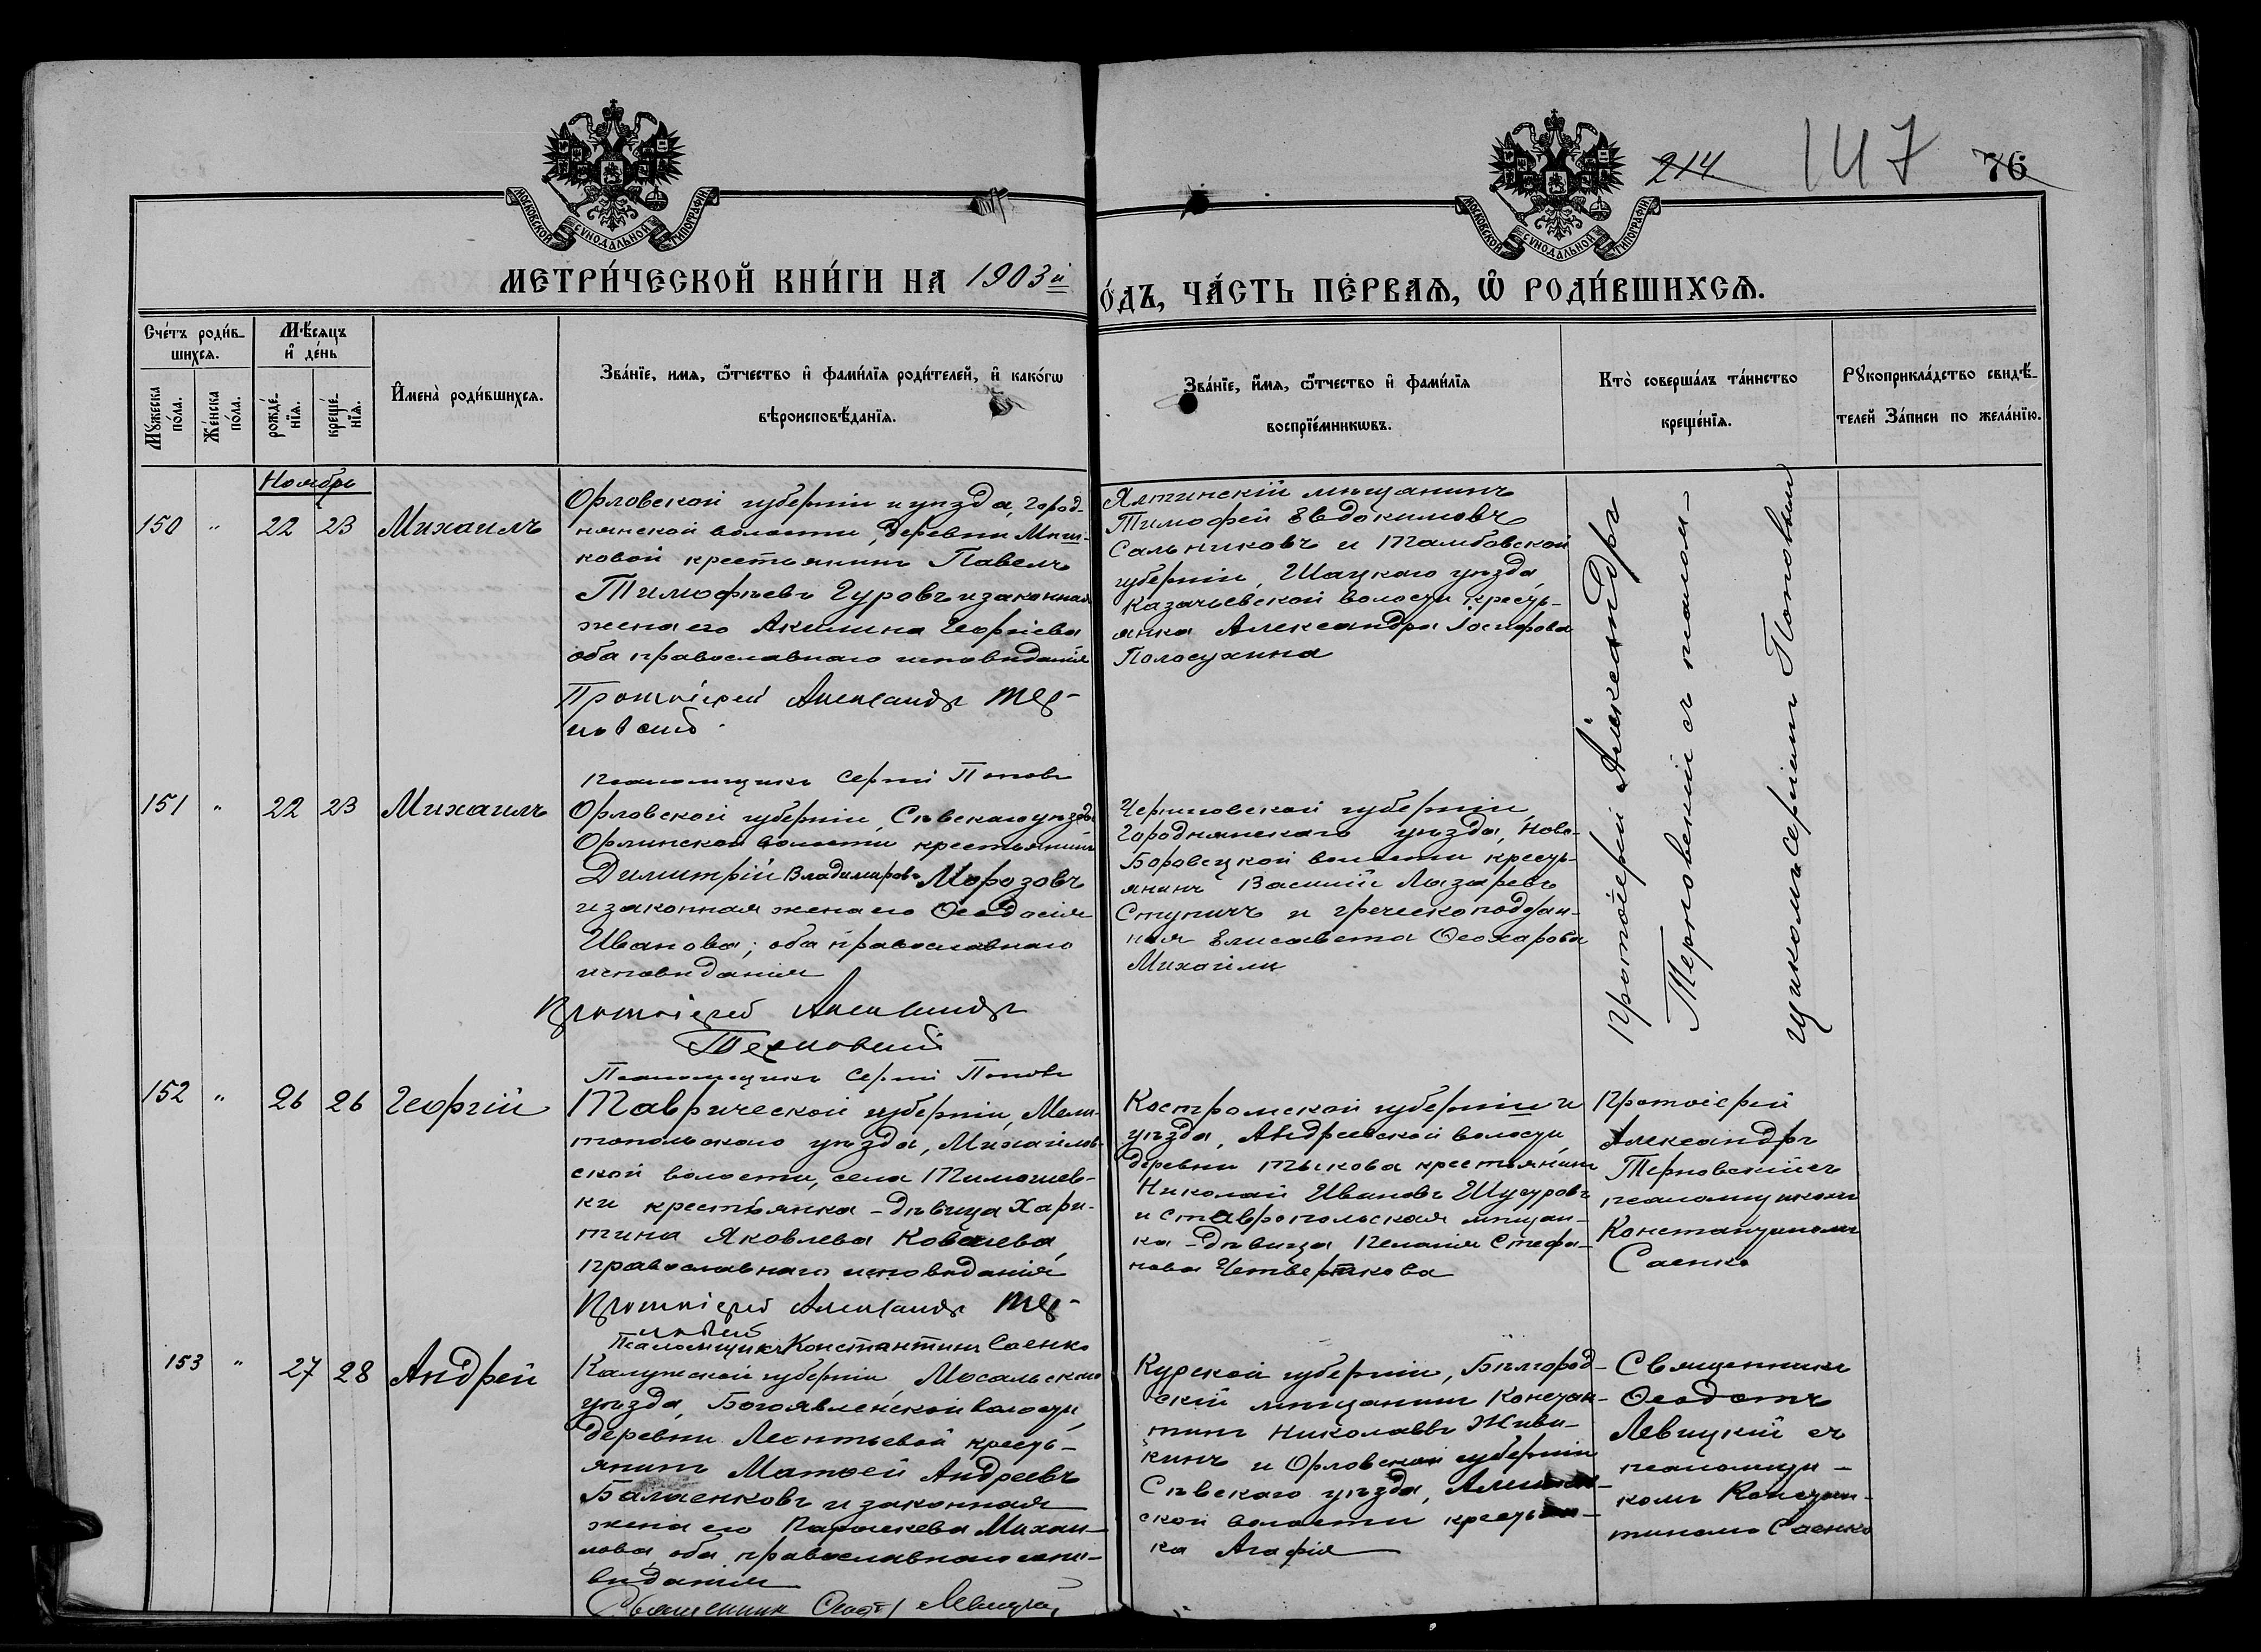 214 147 76
МОСКОВСКОЙ СѴНОДАЛЬНОЙ ТИПОГРАФІИ
МОСКОВСКОЙ СѴНОДАЛЬНОЙ ТИПОГРАФІИ
МЕТРИ́ЧЕСКОЙ КНИ́ГИ НА 1903й
О́ДЪ, ЧА́СТЬ ПЕ́РВАѦ, Ѡ҆ РОДИ́ВШИХСѦ.
Сче́тъ роди́в-
шихсѧ.
Мꙋ́жеска
по́ла.
Же́нска
по́ла.
Мѣ́сѧцъ
и҆ де́нь
рожде́-
нїѧ.
креще́-
нїѧ.
И҆мена̀ роди́вшихсѧ.
Зва́нїе, имѧ, ѻ҆́тчество и҆ фами́лїѧ роди́телей, и҆ како́гѡ
вѣроисповѣ́данїѧ.
Зва́нїе, и҆́мѧ, ѻ҆́тчество и҆ фами́лїѧ
воспрїе́мникѡвъ.
Кто̀ соверша́лъ та́инство
креще́нїѧ.
Рꙋкоприкла́дство свидѣ́-
телей За́писи по жела́нїю.
Ноябрь
150 " 22 23 Михаилъ
Орловской губерніи и уѣзда, Город-
нянской волости, деревни Миш-
ковой крестьянинъ Павелъ
Тимофѣевъ Гуровъ и законная
жена его Акилина Георгіева
оба православнаго исповѣданія
Протоіерей Александръ Тер-
новскій
Псаломщикъ Сергій Поповъ
Ялтинскій мѣщанинъ
Тимофей Евдокимовъ
Сальниковъ и Тамбовской
губерніи, Шацкаго уѣзда,
Казачьевской волости кресть-
янка Александра Іосифова
Полосухина
Протоіерей Александръ
Терновскій съ псалом-
щикомъ Сергіемъ Поповымъ
151 " 22 23 Михаилъ
Орловской губерніи, Сѣвскаго уѣзда
Орлинской волости крестьянинъ
Димитрій Владимировъ Морозовъ
и законная жена его Ѳеодосія
Иванова; оба православнаго
исповѣданія
Протоіерей Александръ
Терновскій
Псаломщикъ Сергій Поповъ
Черниговской губерніи,
Городнянскаго уѣзда, Ново-
Боровецкой волости кресть-
янинъ Василій Лазаревъ
Ступичъ и греческоподдан-
ная Елисавета Ѳеохарова
Михаили
152 " 26 26 Георгій
Таврической губерніи, Мели-
топольскаго уѣзда, Михайлов-
ской волости, села Тимошев-
ки крестьянка-дѣвица Хари-
тина Яковлева Ковалева,
православнаго исповѣданія
Протоіерей Александръ Тер-
новскій
Псаломщикъ Константинъ Саенко
Костромской губерніи и
уѣзда, Андреевской волости,
деревни Тыкова крестьянинъ
Николай Ивановъ
и Ставропольская мѣщан-
ка-дѣвица Пелагія Стефа-
нова Четверткова
Протоіерей
Александръ
Терновскій съ
псаломщикомъ
Константиномъ
Саенко
153 " 27 28 Андрей
Калужской губерніи, Мосальскаго
уѣзда, Богоявленской волости,
деревни Леонтьевой кресть-
янинъ Матвей Андреевъ
Балаенковъ и законная
жена его Параскева Михаи-
лова, оба православнаго испо-
вѣданія
Священникъ Ѳеодотъ Левицкій
Курской губерніи, Бѣлгород-
скій мѣщанинъ Констан-
тинъ Николаевъ Живи-
кинъ и Орловской губерніи
Сѣвскаго уѣзда,
ской волости крестьян-
ка Агафія
Священникъ
Ѳеодотъ
Левицкій съ
псаломщи-
комъ Констан-
тиномъ Саенко